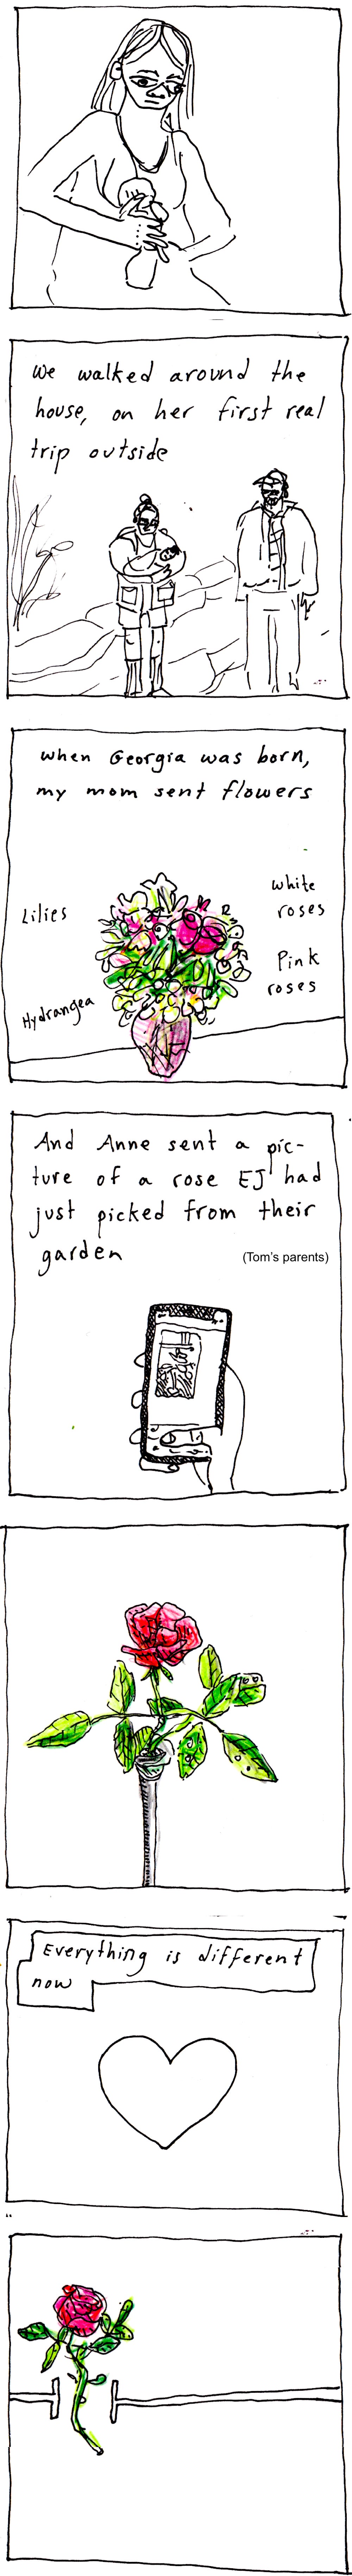 We walked around the
house, on her first real
trip outside
when Georgia was born,
my mom sent flowers
Lilies
white
roses
Pink
roses
Hydrangea
And Anne sent a pic-
ture of a rose EJ had
just picked from their
garden
(Tom's parents)
Everything is different
now